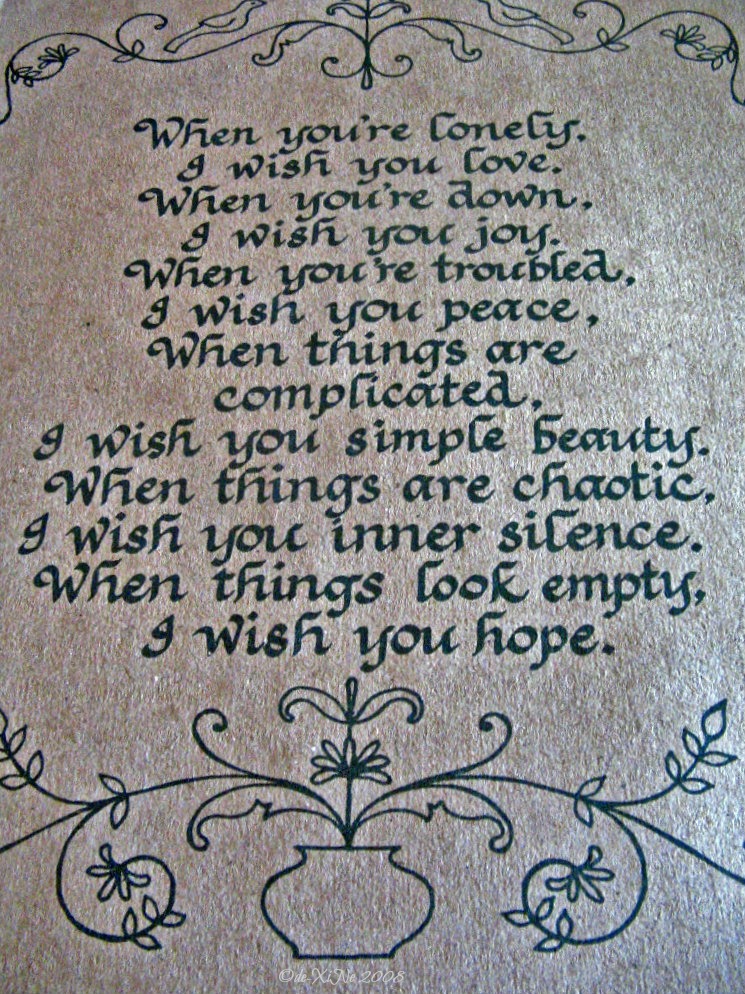 When you're lonely,
I wish you love.
When you're down,
I wish you joy.
When you're troubled,
I wish you peace,
When things are
complicated,
I wish you simple beauty.
When things are chaotic,
I wish you inner silence.
When things look empty,
I wish you hope.
©de-XiNe 2008